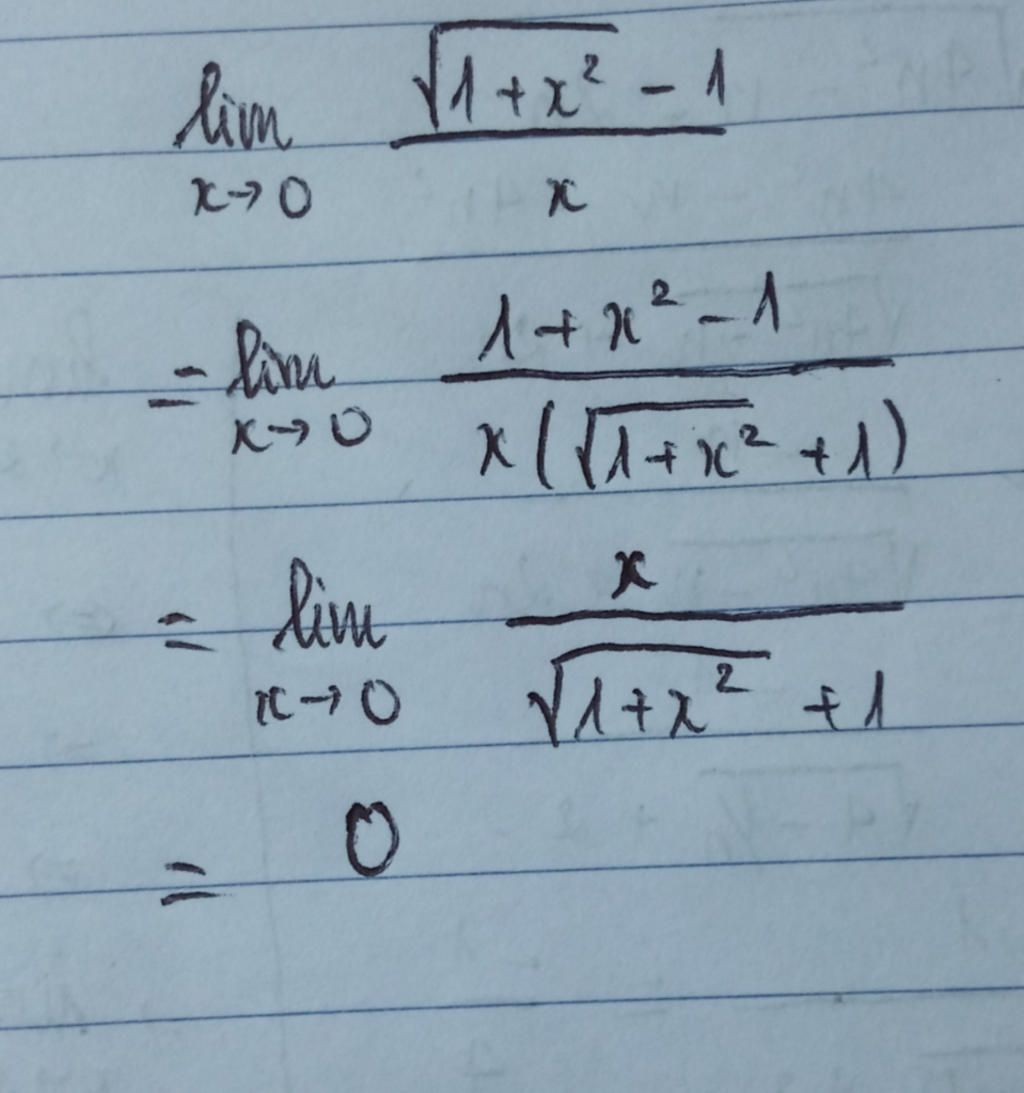 lim x→0 (√(1+x²) - 1) / x
= lim x→0 (1+x²-1) / (x(√(1+x²) + 1))
= lim x→0 x / (√(1+x²) + 1)
= 0